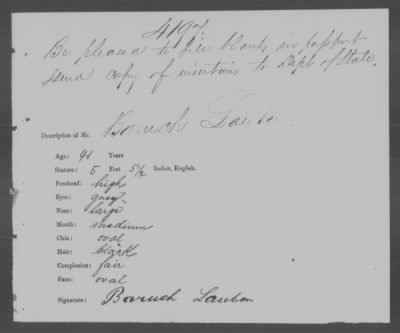 4197
Be pleased to fill blanks in passport
send copy of insertions to Dept of State.
Description of Mr. Baruch Lauban
Age: 41 Years
Stature: 5 Feet 5 1/2 Inches, English.
Forehead: high
Eyes: gray
Nose: large
Mouth: medium
Chin: oval
Hair: black
Complexion: fair
Face: oval
Signature: Baruch Lauban